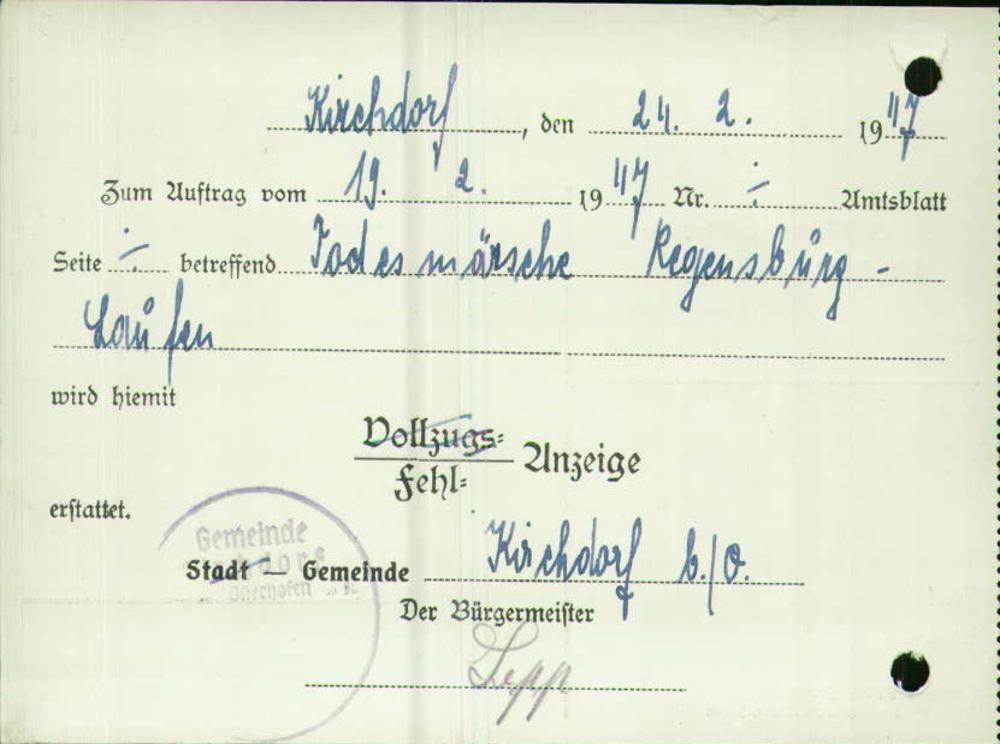 Kirchdorf, den 24. 2. 1947
Zum Auftrag vom 19. 2. 1947 Nr. ÷ Amtsblatt
Seite ÷ betreffend Todesmärsche Regensburg -
Laufen
wird hiemit
Vollzugs= Anzeige
Fehl=
erstattet.
Gemeinde
Stadt — Gemeinde Kirchdorf b./O.
Der Bürgermeister
Sepp